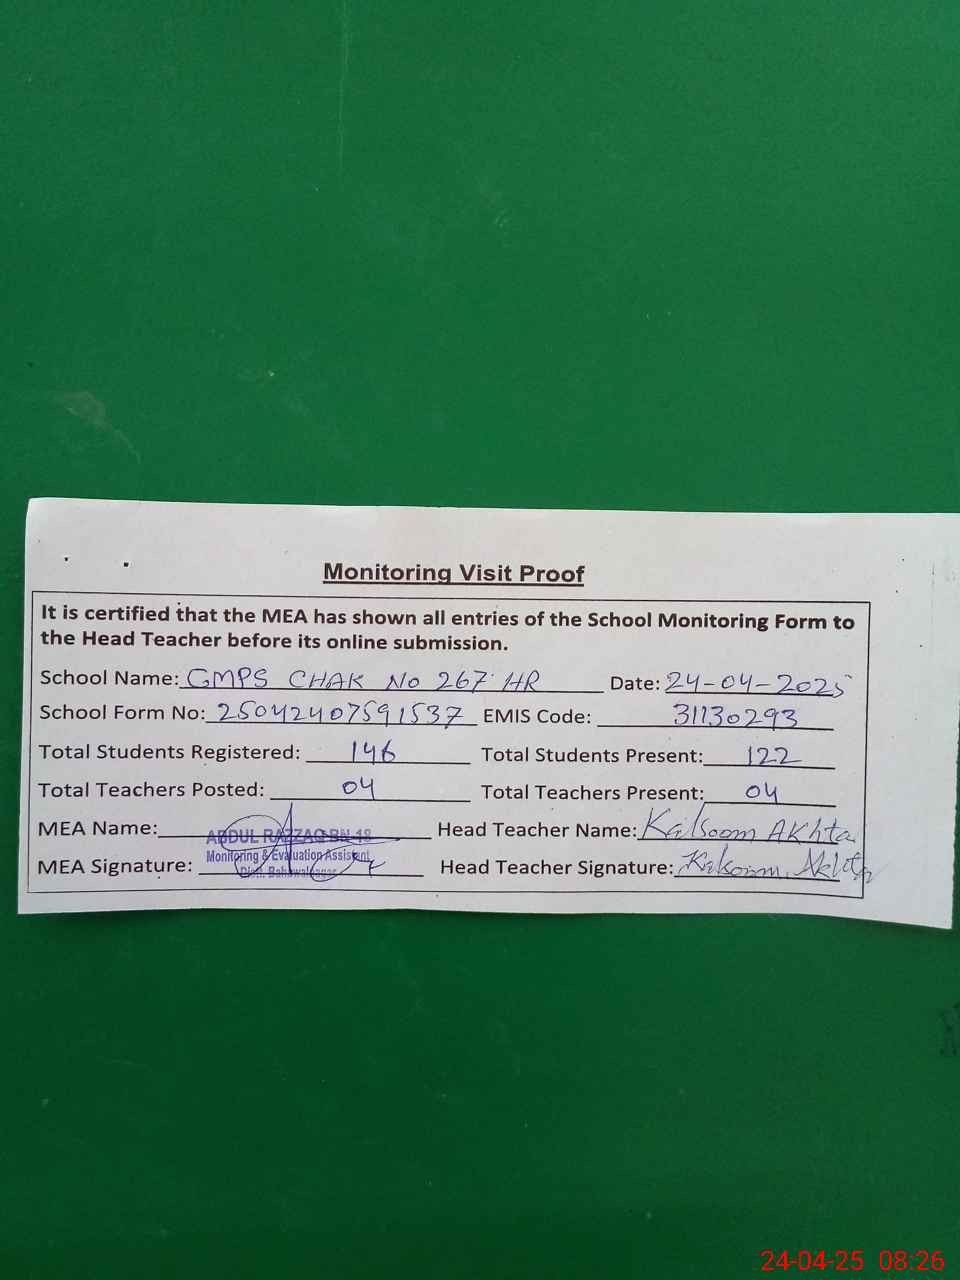 Monitoring Visit Proof
It is certified that the MEA has shown all entries of the School Monitoring Form to
the Head Teacher before its online submission.
School Name: GMPS CHAK No 267 HR Date: 24-04-2025
School Form No: 25042407591537 EMIS Code: 31130293
Total Students Registered: 146 Total Students Present: 122
Total Teachers Posted: 04 Total Teachers Present: 04
MEA Name: ABDUL RAZZAQ BN-18 Head Teacher Name: Kalsoom AKhta
Monitoring & Evaluation Assistant
MEA Signature: Distt. Bahawalnagar Head Teacher Signature: Kalsoom Akhtar
24-04-25 08:26